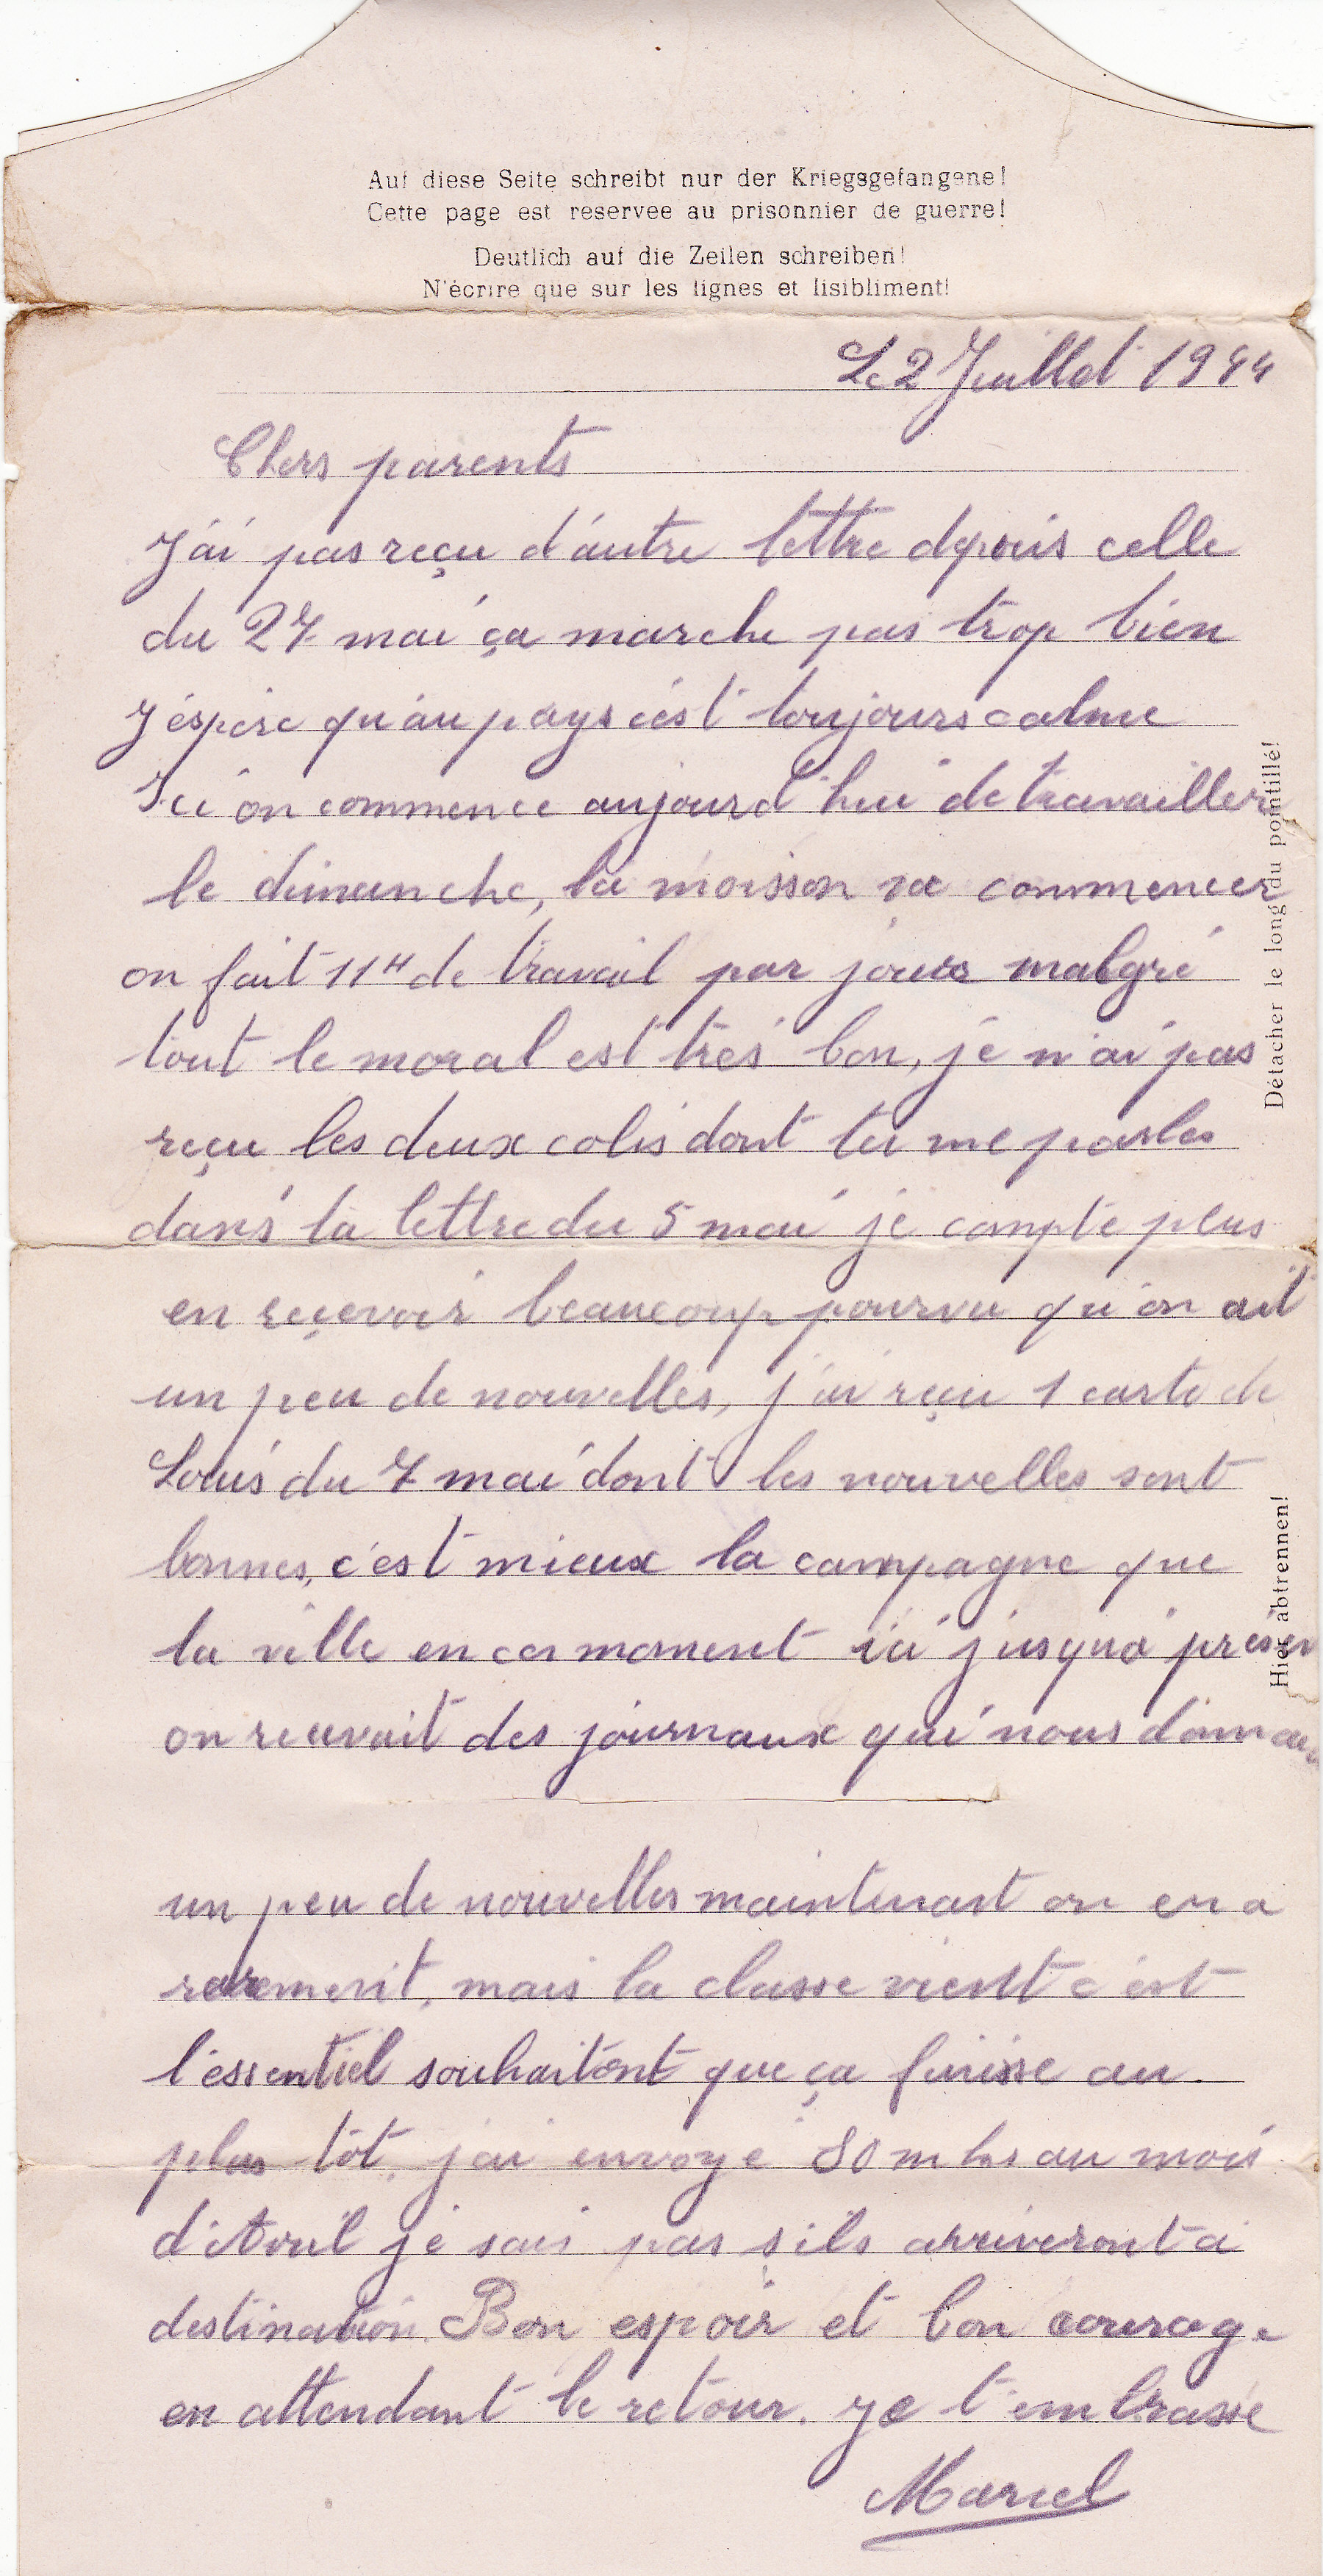 Auf diese Seite schreibt nur der Kriegsgefangene!
Cette page est reservee au prisonnier de guerre!
Deutlich auf die Zeilen schreiben!
N'écrire que sur les lignes et lisibliment!
Le 2 Juillet 1944
Chers parents
J'ai pas reçu d'autre lettre depuis celle
du 27 mai ça marche pas trop bien
J'éspère qu'au pays c'est toujours calme
Ici on commence aujourd'hui de travailler
le dimanche, la moisson va commencer
on fait 11H de travail par jours malgré
tout le moral est très bon, je n'ai pas
reçu les deux colis dont tu me parles
dans la lettre du 5 mai je compte plus
en reçevoir beaucoup pourvu qu'on ait
un peu de nouvelles, j'ai reçu 1 carte de
Louis du 7 mai dont les nouvelles sont
bonnes, c'est mieux la campagne que
la ville en ces moment ici jusqu'a présen
on recevait des journaux qui nous donnai
un peu de nouvelles maintenant on en a
rarement, mais la classe vient c'est
l'essentiel souhaitont que ça finisse au
plus tôt, j'ai envoyé 80 mks au mois
d'Avril je sais pas s'ils arriveront a
destination. Bon espoir et bon courage
en attendant le retour. Je t'embrasse
Marcel
Détacher le long du pointillé!
Hier abtrennen!